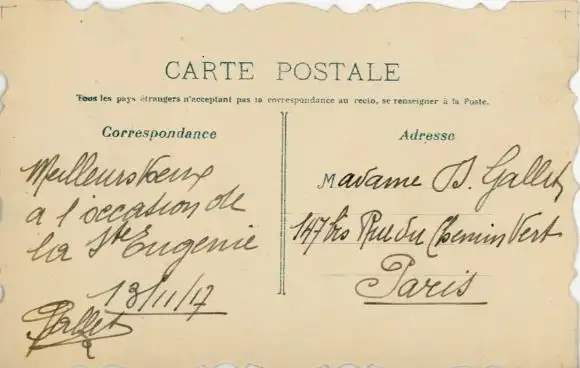 CARTE POSTALE
Tous les pays étrangers n'acceptant pas la correspondance au recto, se renseigner à la Poste.
Correspondance
Meilleurs Voeux
a l'occasion de
la Ste Eugenie
13/11/17
Gallet
Adresse
Madame B. Gallet
147 bis Rue du Chemin Vert
Paris